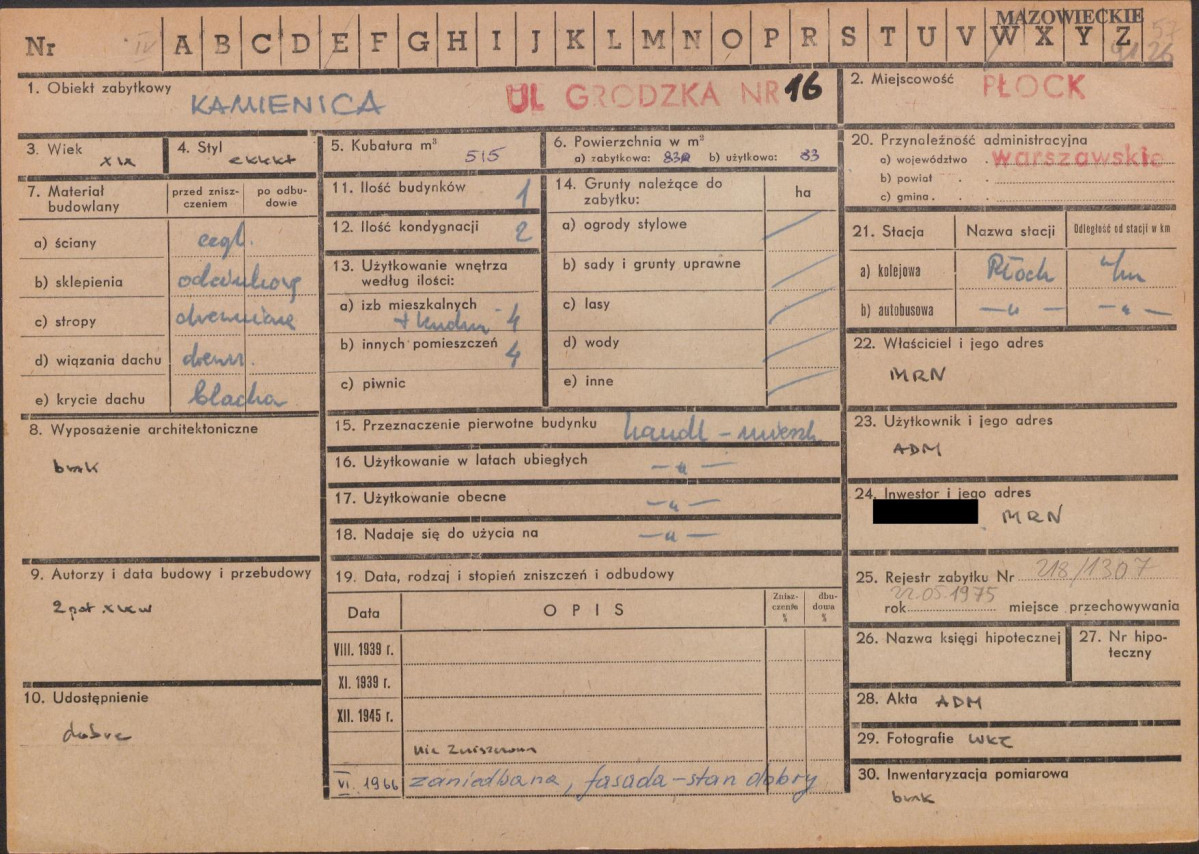 MAZOWIECKIE
Nr IV A B C D E F G H I J K L M N O P R S T U V W X Y Z
1. Obiekt zabytkowy
KAMIENICA UL GRODZKA NR 16
2. Miejscowość PŁOCK
3. Wiek XIX
4. Styl eklekt
5. Kubatura m³ 515
6. Powierzchnia w m²
a) zabytkowa: 83 b) użytkowa: 83
7. Materiał budowlany
przed zniszczeniem
po odbudowie
a) ściany cegl.
b) sklepienia odcinkowe
c) stropy drewniane
d) wiązania dachu drewn.
e) krycie dachu blacha
8. Wyposażenie architektoniczne
brak
9. Autorzy i data budowy i przebudowy
2 poł XIX w
10. Udostępnienie
dobre
11. Ilość budynków 1
12. Ilość kondygnacji 2
13. Użytkowanie wnętrza
według ilości:
a) izb mieszkalnych
+ kuchni 4
b) innych pomieszczeń 4
c) piwnic
14. Grunty należące do
zabytku:
ha
a) ogrody stylowe
b) sady i grunty uprawne
c) lasy
d) wody
e) inne
15. Przeznaczenie pierwotne budynku handl - mieszk
16. Użytkowanie w latach ubiegłych — " —
17. Użytkowanie obecne — " —
18. Nadaje się do użycia na — " —
19. Data, rodzaj i stopień zniszczeń i odbudowy
Data
OPIS
Zniszczenie %
dbudowa %
VIII. 1939 r.
XI. 1939 r.
XII. 1945 r.
nie zniszczona
VI. 1966 zaniedbana, fasada - stan dobry
20. Przynależność administracyjna
a) województwo warszawskie
b) powiat
c) gmina
21. Stacja
Nazwa stacji
Odległość od stacji w km
a) kolejowa Płock
b) autobusowa — " — — " —
22. Właściciel i jego adres
MRN
23. Użytkownik i jego adres
ADM
24. Inwestor i jego adres
MRN
25. Rejestr zabytku Nr 218/1307
22.05.1975
rok miejsce przechowywania
26. Nazwa księgi hipotecznej
27. Nr hipoteczny
28. Akta ADM
29. Fotografie WKZ
30. Inwentaryzacja pomiarowa
brak